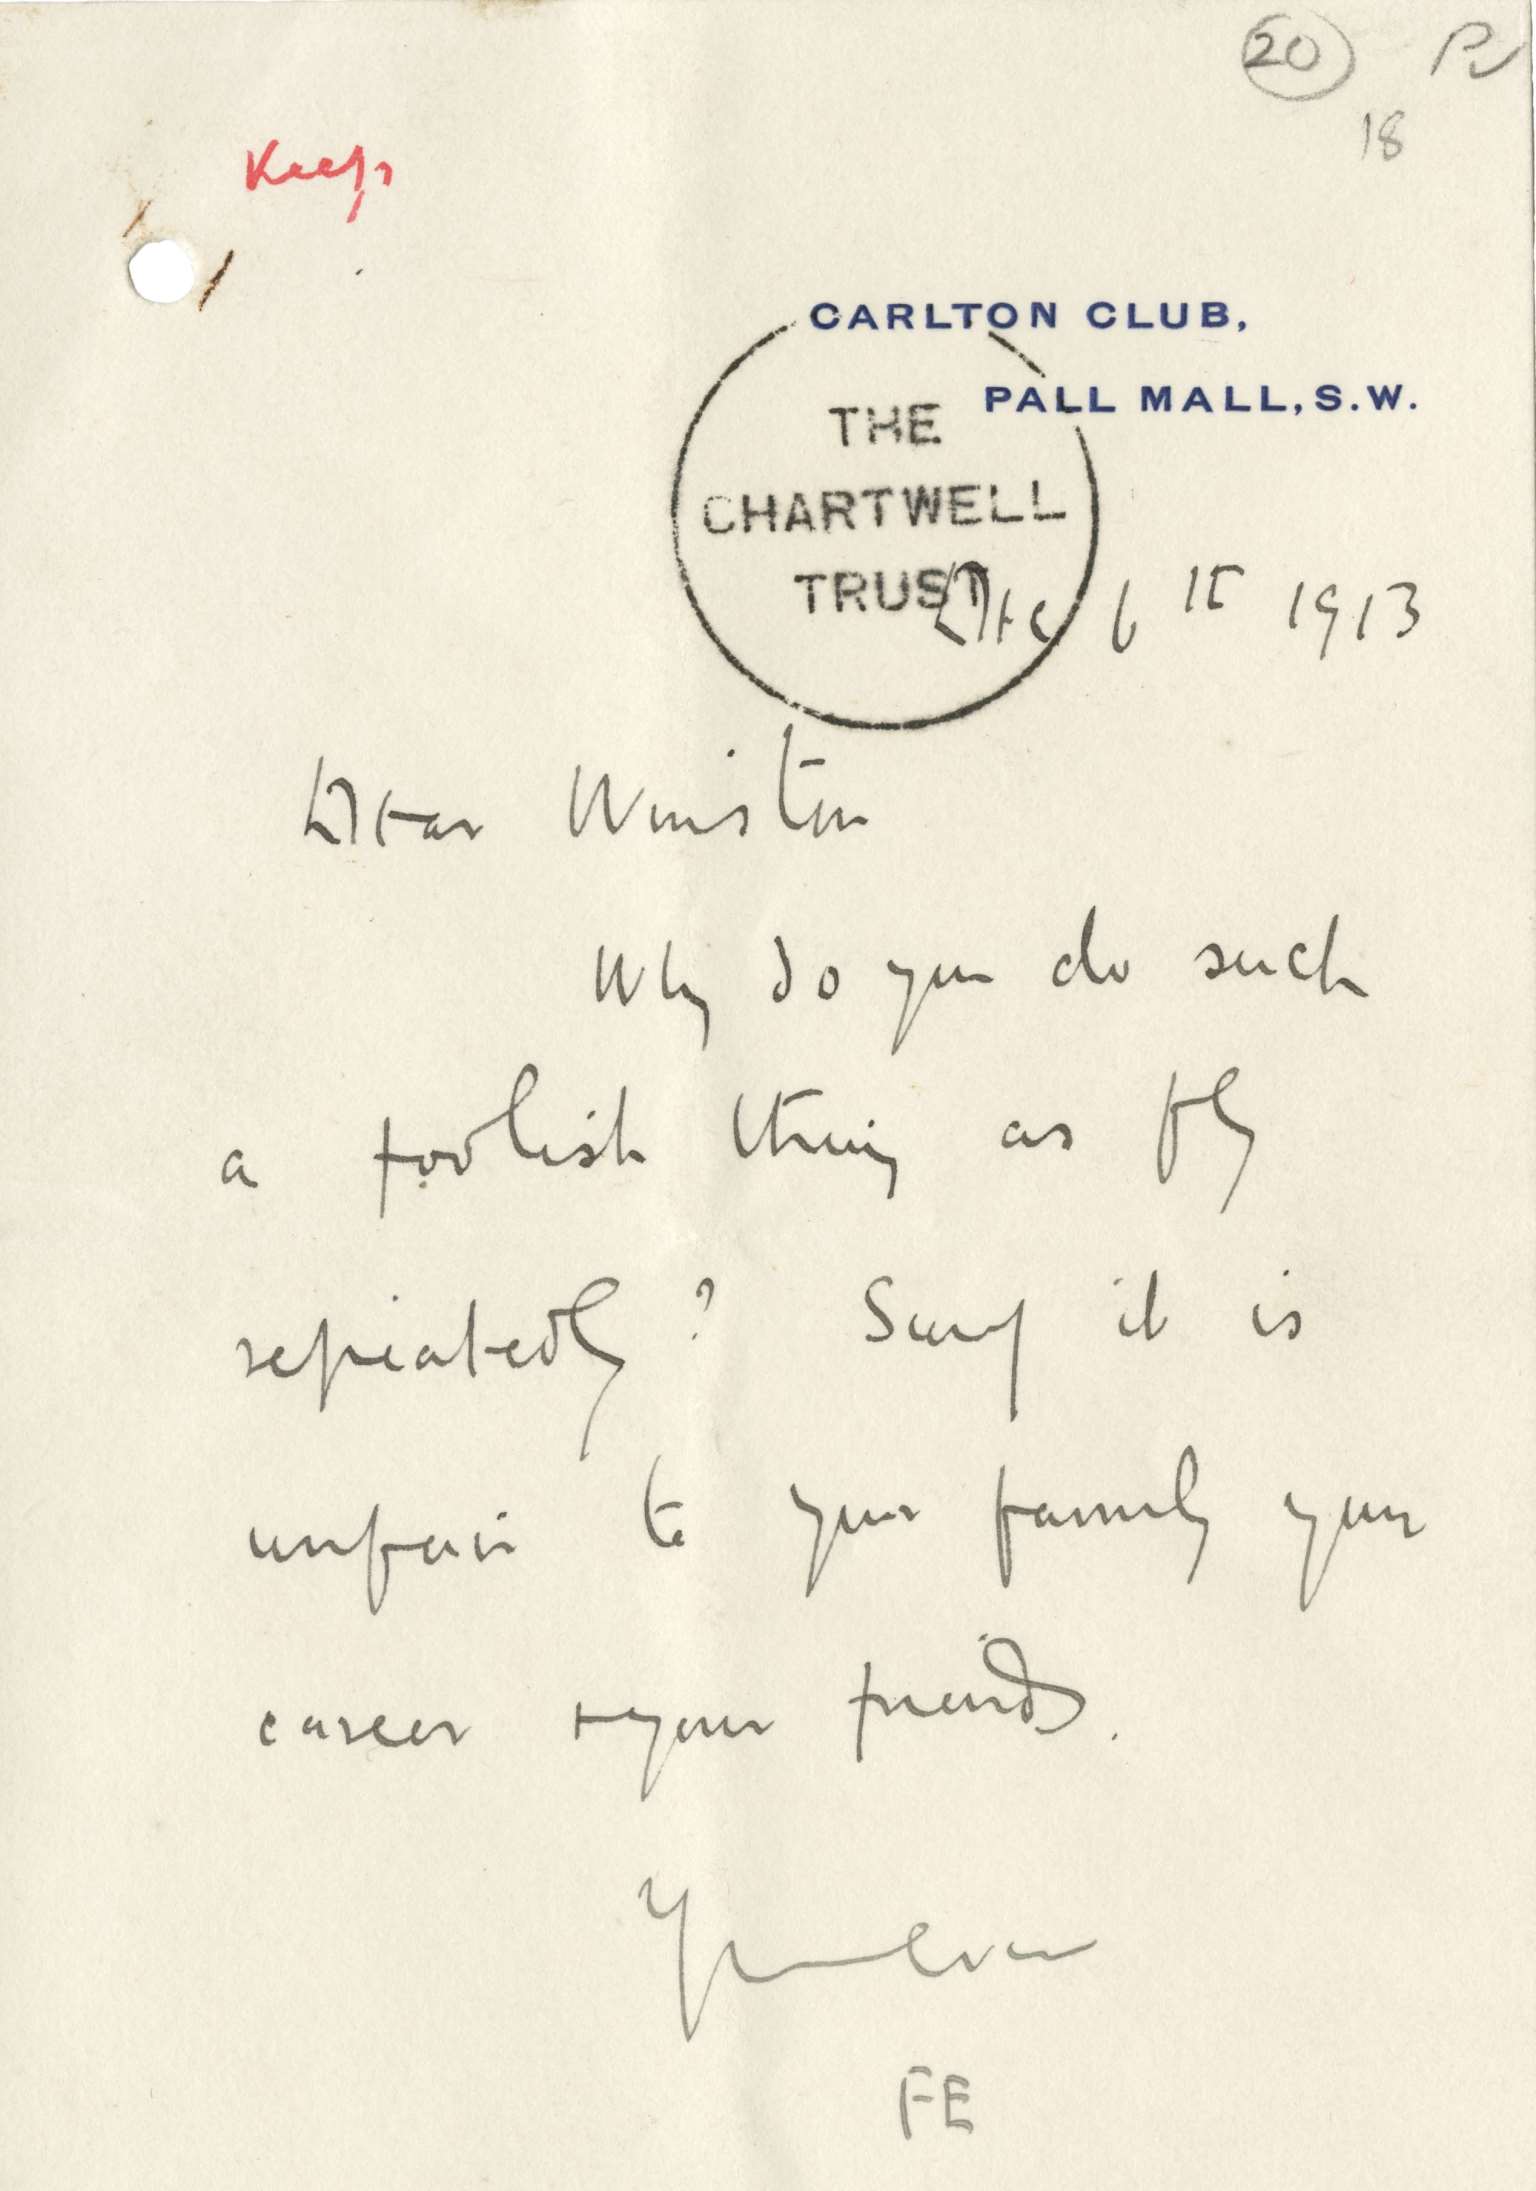 20
18
Keep
CARLTON CLUB,
PALL MALL, S.W.
THE
CHARTWELL
TRUST
Dec 6th 1913
Dear Winston
Why do you do such
a foolish thing as fly
repeatedly? Surely it is
unfair to your family your
career & your friends.
Yours ever
FE